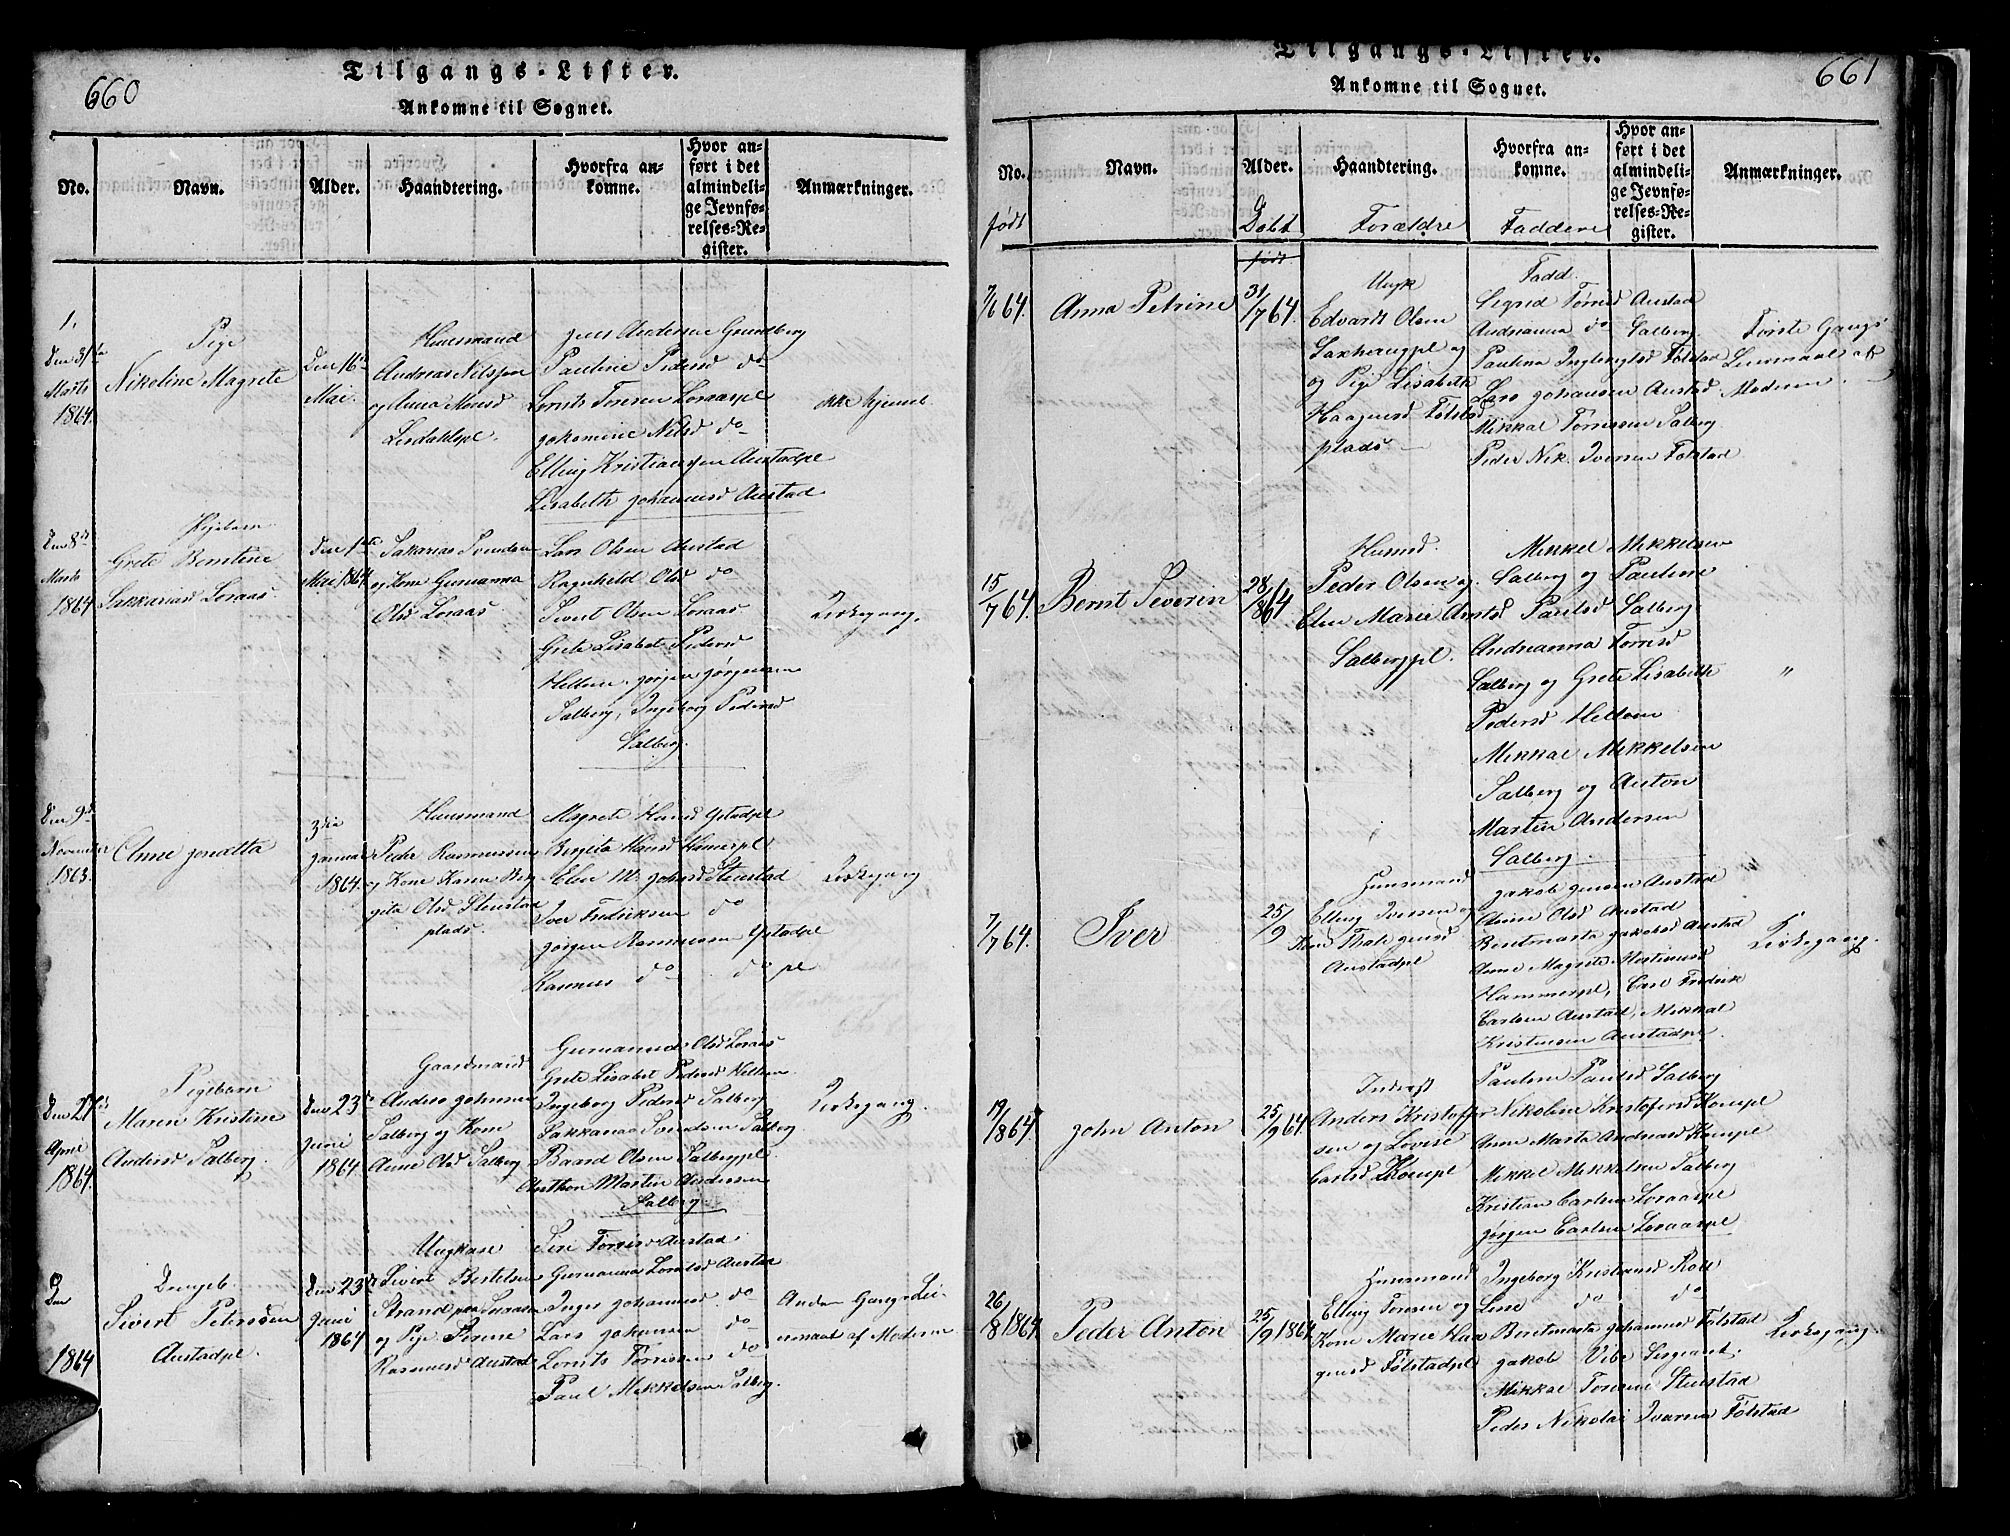 660
Tilgangs-Lister.
Ankomne til Sognet.
No.
Navn.
Alder.
Haandtering.
Hvorfra an-
komne.
Hvor an-
ført i det
almindeli-
ge Jevnfø-
relses-Re-
gister.
Anmærkninger.
1.
Den 31te
Marts
1864.
Pige
Nikoline Magrete
Den 16de
Mai.
Huusmand
Andreas Nilssen
og Anna Monsd
Jens Andersen Grundberg
Pauline Pedersd do
Lornts Toresen Loraaspl
Johamine Nilsd do
Elling Kristiansen Austadpl
Lisabeth Johannesd Austad
ikke hjemd
Den 8de
Marts
1864
Pigebarn
Grete Berntine
Sakkariasd Loraas.
Den 1ste
Mai 1864
Sakarias Svendsen
og Kone Gurianna
Olsd Loraas
Lars Olsen Austad
Ragnheld Olsd do
Sivert Olsen Loraas
Grete Lisabet Pedersd
Hellem, Jørgen Jørgensen
Salberg, Ingeborg Pedersd
Salberg.
Kirkegang.
Den 9de
November
1863.
Anne Jonetta
3die
Januar
1864.
Huusmand
Peder Rasmussen
og Kone Karen Ber
gita Olsd Stenstad
plads.
Magrete Hansd Ystadpl
Bergita Hansd Hamerpl
Elen M. Johansd Stenstad
Iver Fredriksen do
Jørgen Rasmussen Ystadpl
Rasmus do do pl
Kirkegang
Den 27de
April
1864.
Pigebarn
Maren Kristine
Andersd Salberg.
Den 23de
Juni
1864
Gaardmand
Anders Johnsen
Salberg og Kone
Anne Olsd Salberg
Gurianna Olsd Loraas
Grete Lisabet Pedersd Hellem
Ingeborg Pedersd Salberg
Sakkarias Svendsen Salberg
Baard Olsen Salbergpl.
Anthon Martin Andersen
Salberg
Kirkegang.
Den
1864
Drengeb.
Sivert Peterssen
Austadpl.
Den 23de
Juni
1864
Ungkarl
Sivert Bertelsen
og Pige Serine
Rasmusd Austad
Siri Torrisd Austad
Gurianna Lorntsd Austad
Inger Johannesd do
Lars Johansen do
Lornts Torrissen do
Paul Mikkelsen Salberg.
Anden Gangs Lei-
ermaal af Moderen
Tilgangs-Lister.
661
Ankomne til Sognet.
No.
Navn.
Alder.
Haandtering.
Hvorfra an-
komne.
Hvor an-
ført i det
almindeli-
ge Jevnfø-
relses-Re-
gister.
Anmærkninger.
født
Døbt
Forældre
Faddere
født
7/6 64.
Anna Petrine
31/7 64.
Ungk
Edvardt Olsen
og
og Pige Lisabeth
Haagensd Følstad
plads
Fadd.
Sigrid Torrisd Austad
Andrianna do Salberg
Paulina Ingbrigtsd Følstad
Lars Johansen Austad
Mikkal Torrissen Salberg
Peder Nik. Iversen Følstad
Første Gangs
Leiermaal af
Moderen.
15/7 64.
Bernt Severin
28/8 64
Huusd.
Peder Olsen og
Elen Marie Arntsd
Salbergpl.
Mikkel Mikkelsen
Salberg og Pauline
Paulsd Salberg
Andrianna Torrisd
Salberg og Grete Lisabeth
Pedersd Hellem
Mikkal Mikkelsen
Salberg og Anton
Martin Andersen
Salberg.
"
7/7 64.
Iver
25/9
Huusmand
Elling Iversen og
Kone Thale Jensd
Austadpl
Jakob Jensen Austad
Anne Olsd Austad
Beritmarta Jakobsd Austad
Anne Magrete Mortinusd
Hammerpl, Carl Fredrik
Carlsen Austad, Mikkal
Kristensen Austadpl.
Kirkegang.
19/8 64
John Anton
25/9 64
Inderst
Anders Kristoffer
sen og Lovise
Carlsd
Pauline Paulsd Salberg
Nikoline Kristofersd
Anne Marta Andreasd
Mikkel Mikkelsen Salberg
Kristian Carlsen Loraaspl
Jørgen Carlsen Loraaspl
26/8 1864
Peder Anton
25/9 1864
Huusmand
Elling Toresen og
Kone Marie Haa
gensd Følstadpl
Ingeborg Kristiansd
Lise do do
Beritmarta Johannesd Følstad
Jakob Vibe Sergeant.
Mikkal Toresen Stenstad
Peder Nikolai Ivarsen Følstad
Kirkegang